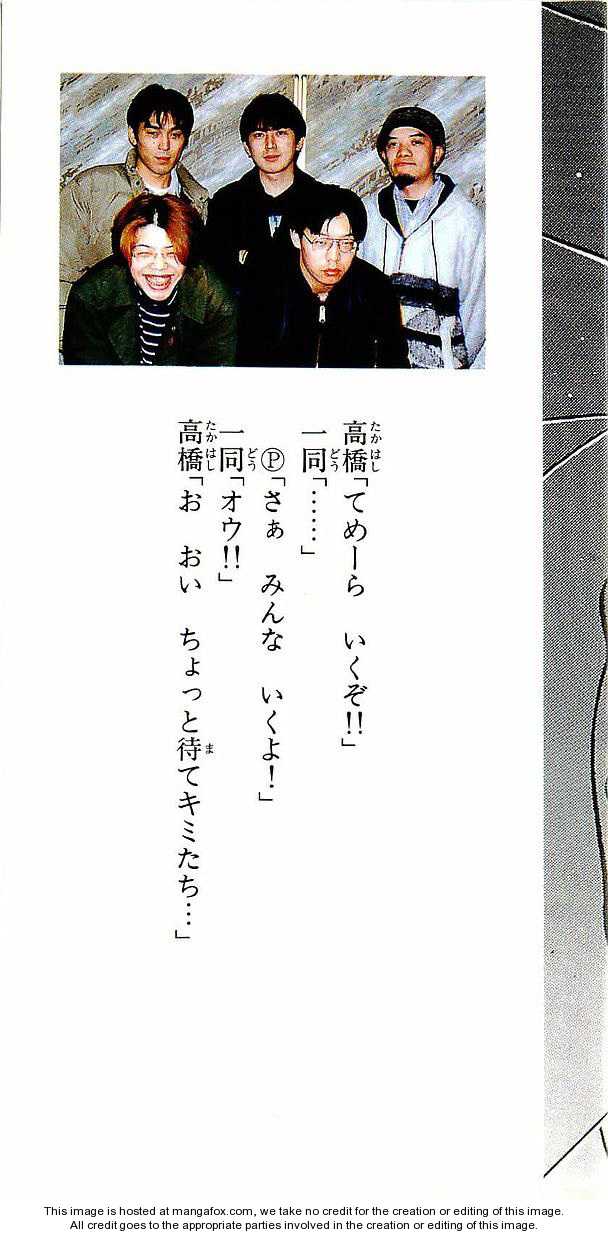 高橋「てめーら　いくぞ!!」
一同「……」
Ⓟ「さぁ　みんな　いくよ！」
一同「オウ!!」
高橋「お　おい　ちょっと待てキミたち…」
This image is hosted at mangafox.com, we take no credit for the creation or editing of this image.
All credit goes to the appropriate parties involved in the creation or editing of this image.